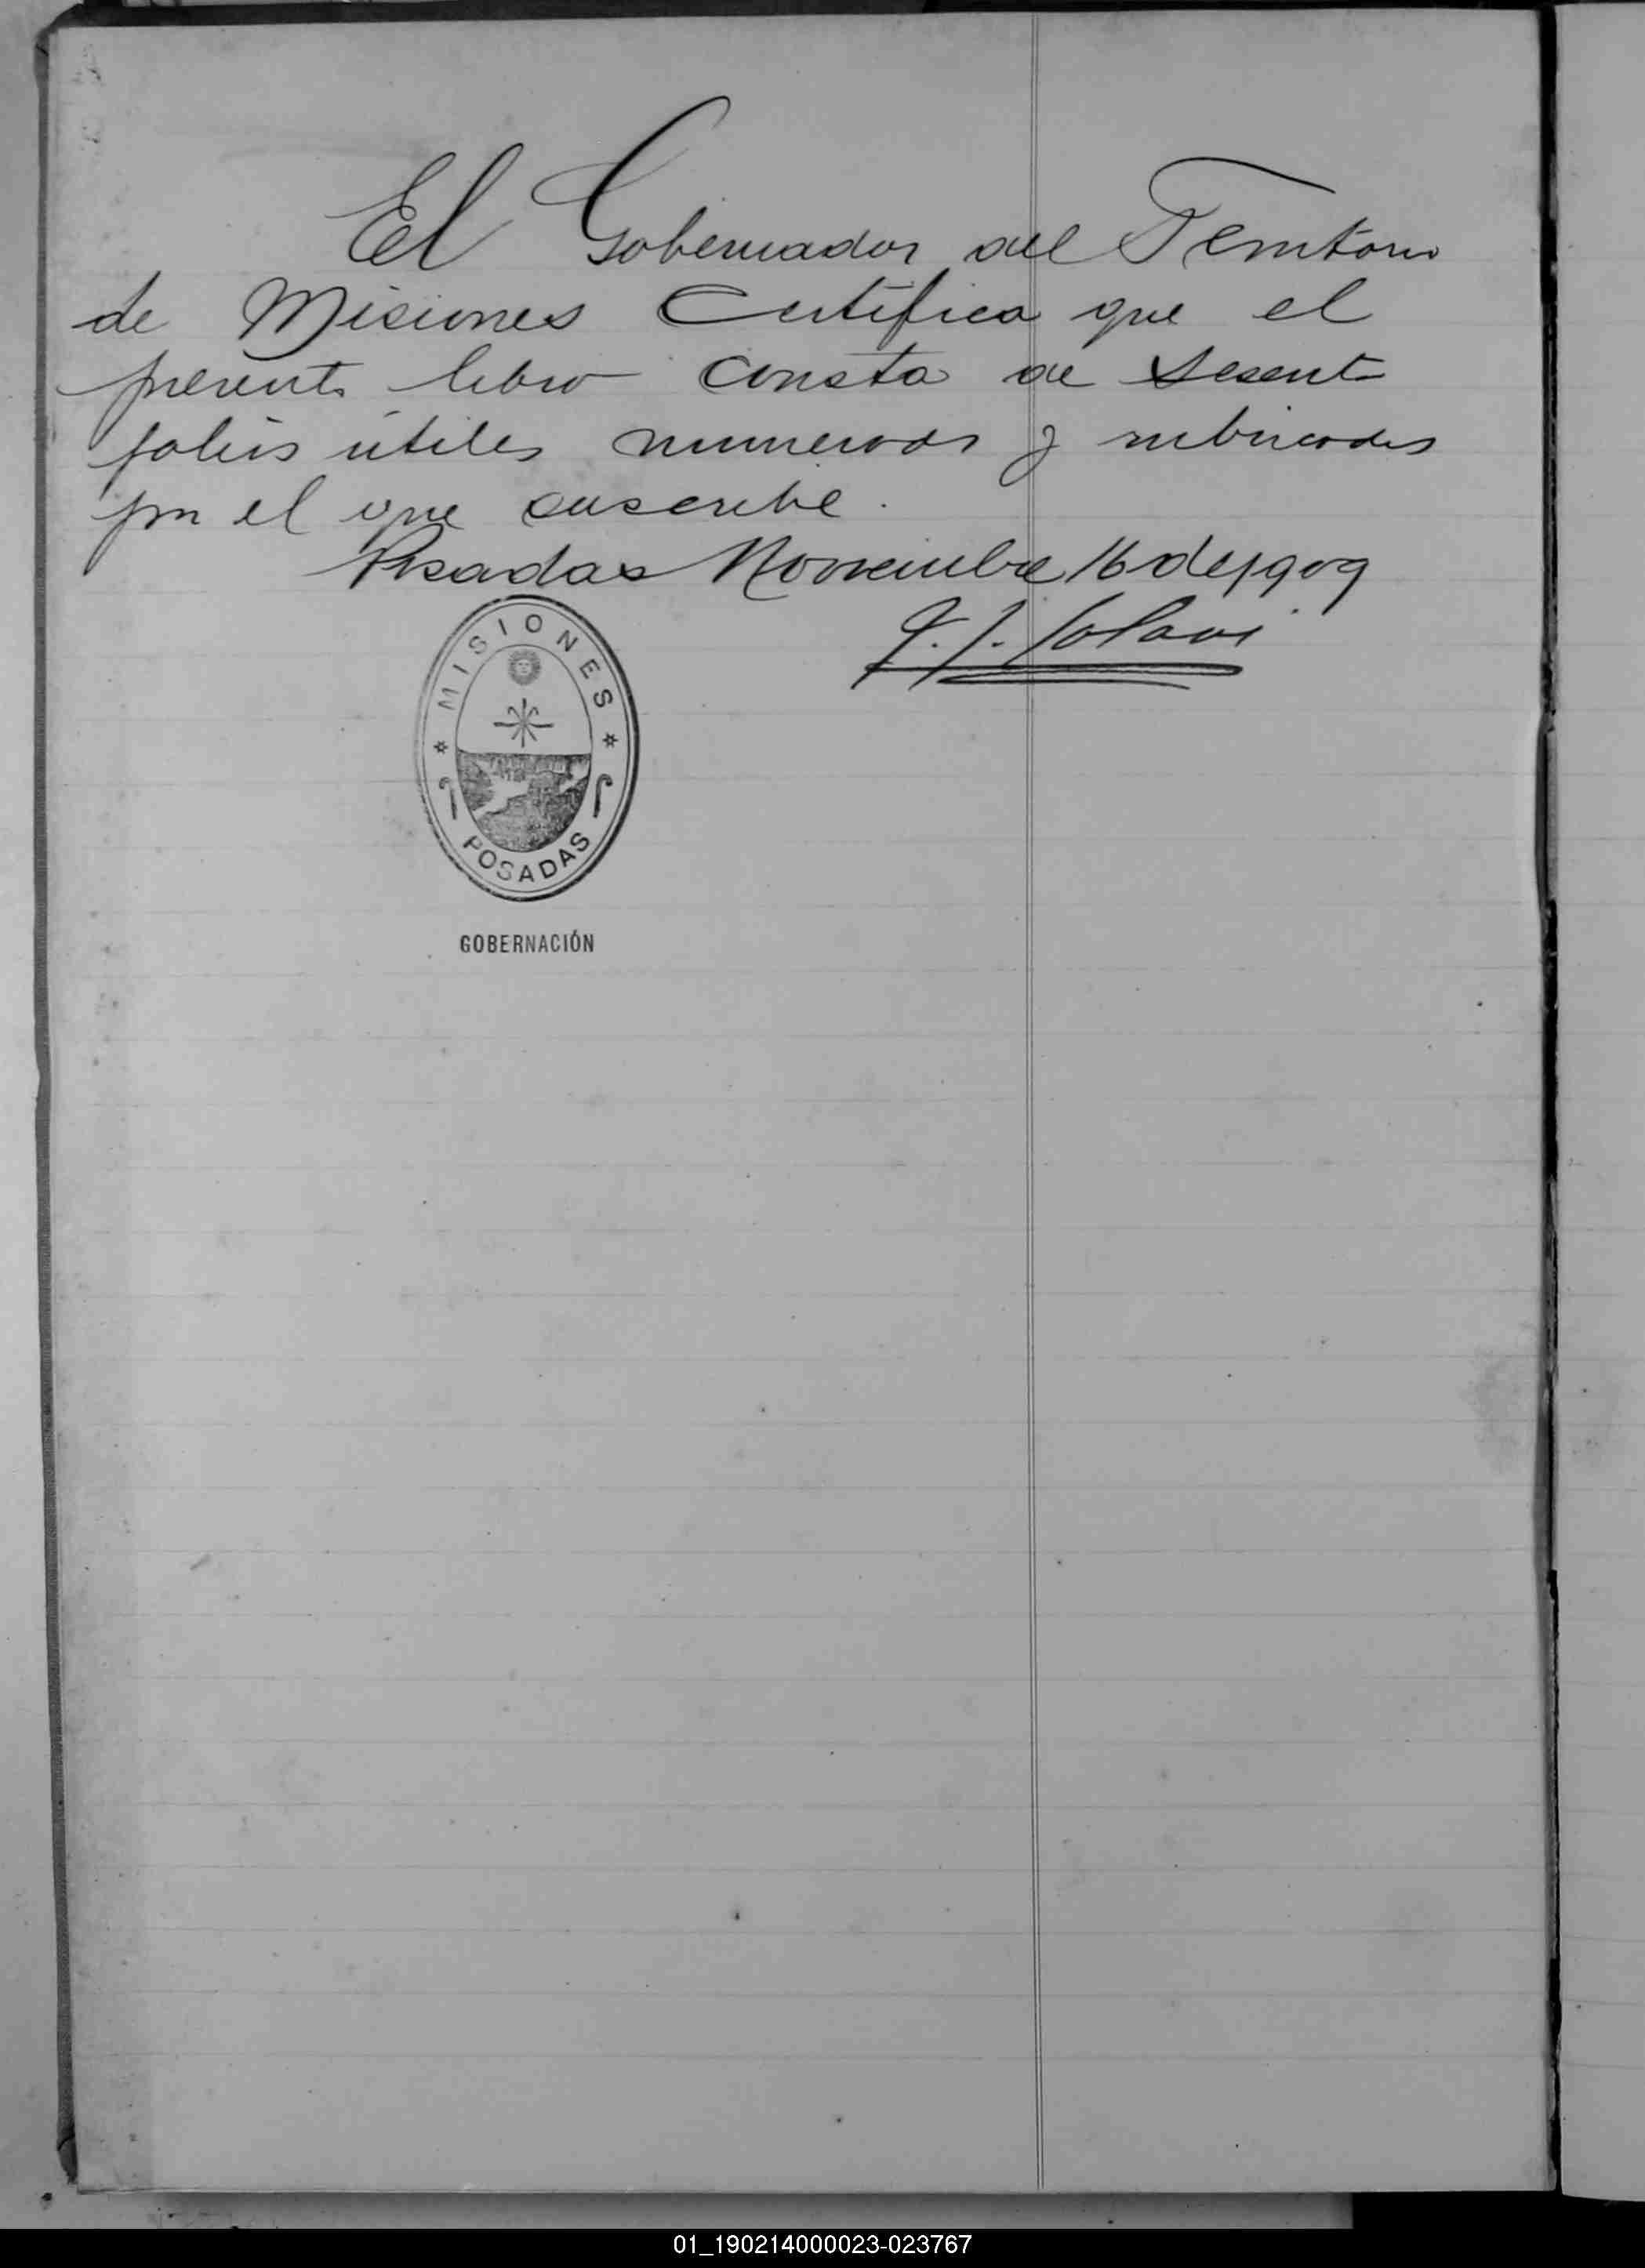 El Gobernador del Territorio
de Misiones Certifica que el
presente libro consta de sesenta
folios útiles numerados y rubricados
por el que suscribe.
Posadas Noviembre 16 de 1909
MISIONES
POSADAS
GOBERNACIÓN
01_190214000023-023767